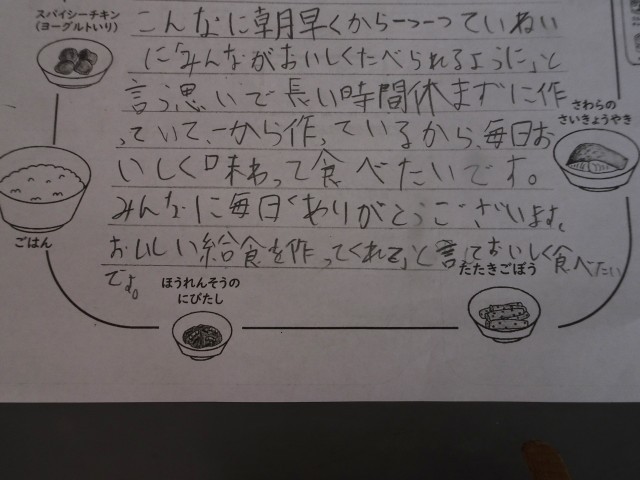 スパイシーチキン
(ヨーグルトいり)
こんなに朝早くから一つ一つていねい
に「みんながおいしくたべられるように」と
言う思いで長い時間休まずに作
っていて、一から作っているから、毎日お
いしく味わって食べたいです。
みんなに毎日「ありがとうございます。
おいしい給食を作ってくれて」と言っておいしく食べたい
です。
さわらの
さいきょうやき
ごはん
ほうれんそうの
にびたし
たたきごぼう